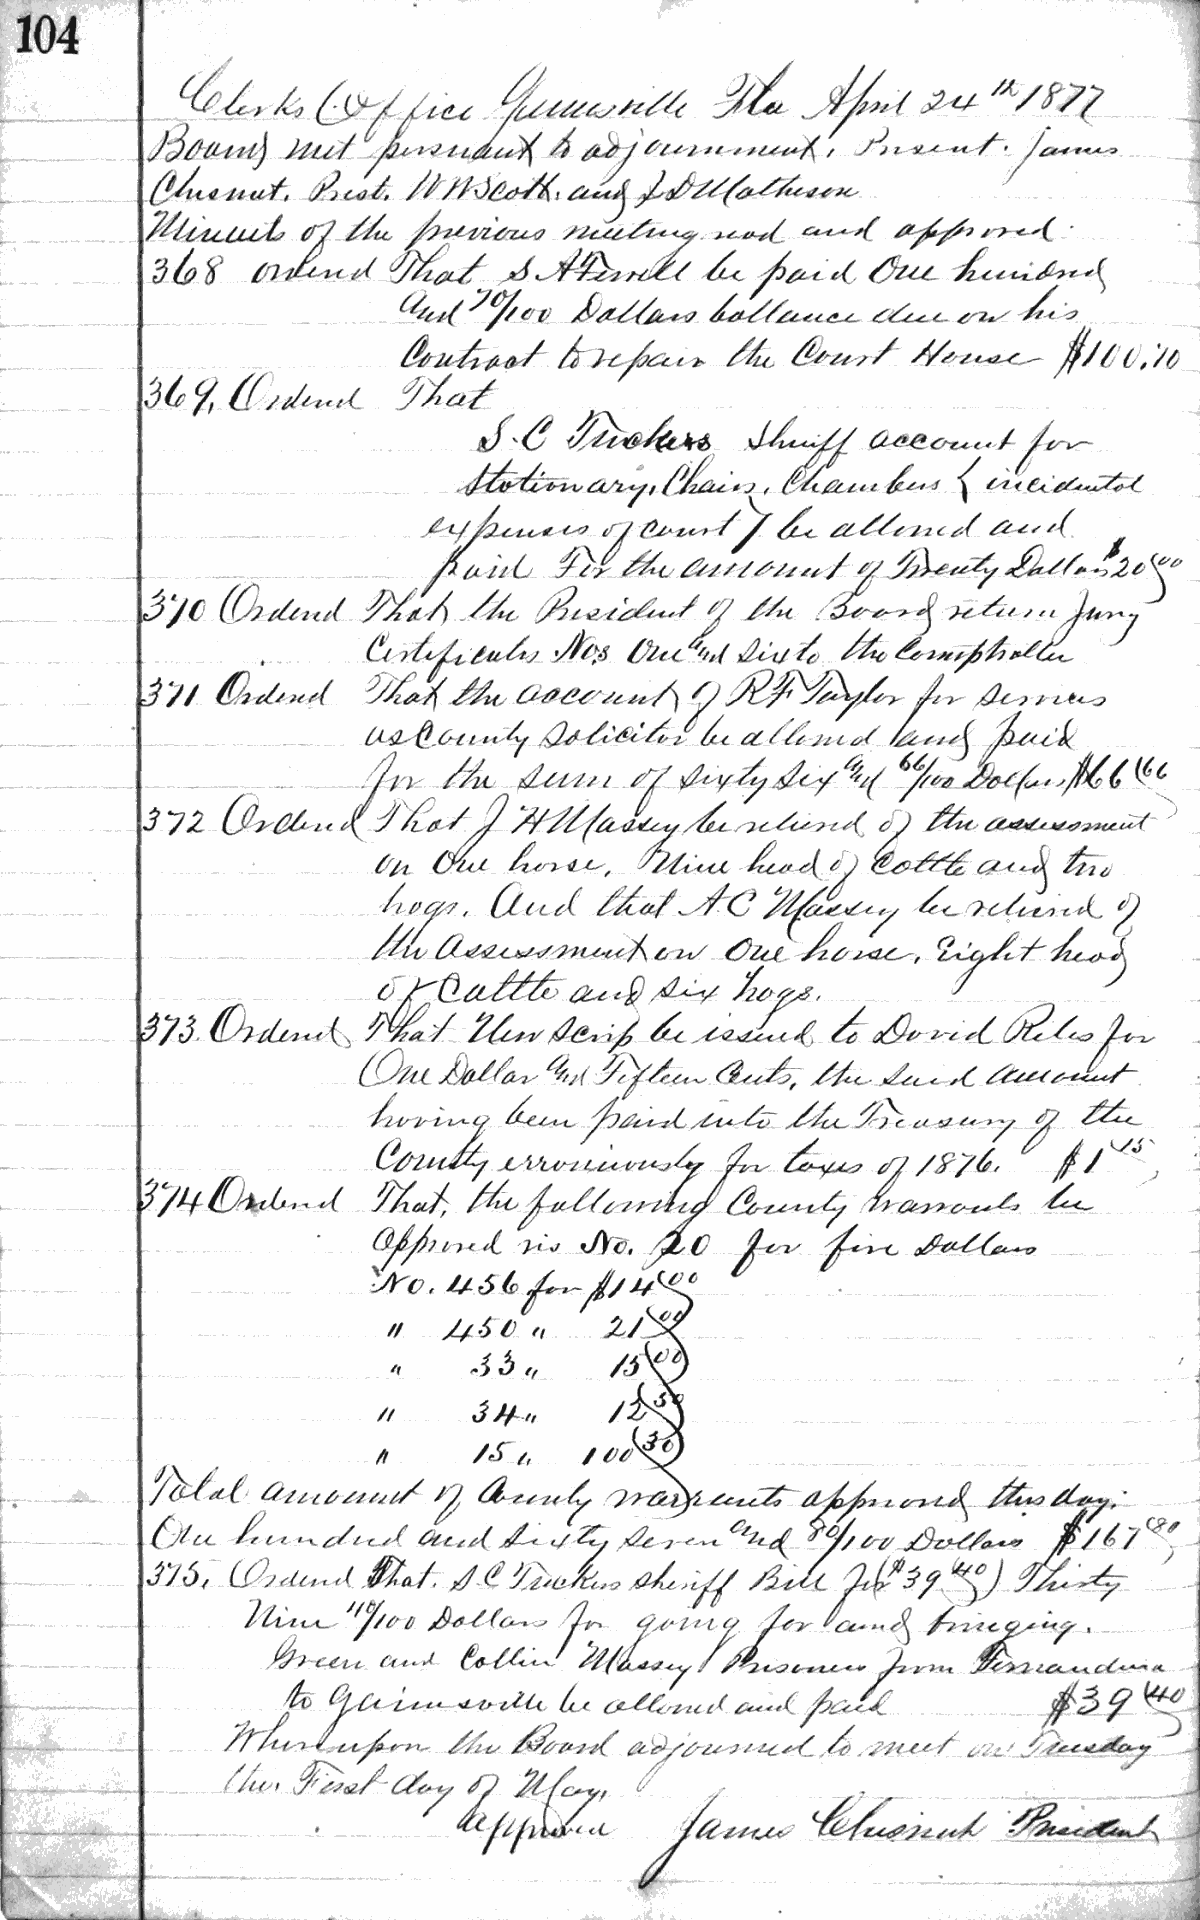 104
Clerks Office Gainesville Fla April 24th 1877
Board met persuant to adjournment. Present. James
Chesnut. Prest. W W Scott. and J D Matheson
Minuets of the previous meeting read and approved.
368 ordered That S A Ferrell be paid One hundred
and 70/100 Dollars ballance due on his
Contract to repair the Court House $100.70
369, Ordered That
S. C Tuckers Sheriff account for
Stationary, Chairs, Chambers & incidental
expenses of court be allowed and
paid For the amount of Twenty Dollars $20.00
370 Ordered That the President of the Board return Jury
Certificates Nos One and Six to the Comptroller
371 Ordered That the account of R F Taylor for services
as County Solicitor be allowed and paid
for the sum of Sixty Six and 66/100 Dollars $66.66
372 Ordered That J H Massey be relieved of the assessment
on One horse, Nine head of Cattle and two
hogs. And that A C Massey be relieved of
the Assessment on One horse, Eight head
of Cattle and six hogs.
373. Ordered That New Scrip be issued to David Riles for
One Dollar and Fifteen Cents, the said amount
having been paid into the Treasury of the
County erroniously for taxes of 1876. $1.15
374 Ordered That, the following County warrants be
approved vis No. 20 for five Dollars
No. 456 for $14.00
" 450 " 21.00
" 33 " 15.00
" 34 " 12.50
" 15 " 100.30
Total amount of County warrants approved this day.
One hundred and sixty seven and 80/100 Dollars $167.80
375, Ordered That. S C Tuckers Sheriff Bill for ($39.40) Thirty
Nine 40/100 Dollars for going for and bringing.
Green and Collin Massey Prisoners from Fernandina
to Gainesville be allowed and paid $39.40
Whereupon the Board adjourned to meet on Tuesday
the. First day of May.
Approved James Chesnut President